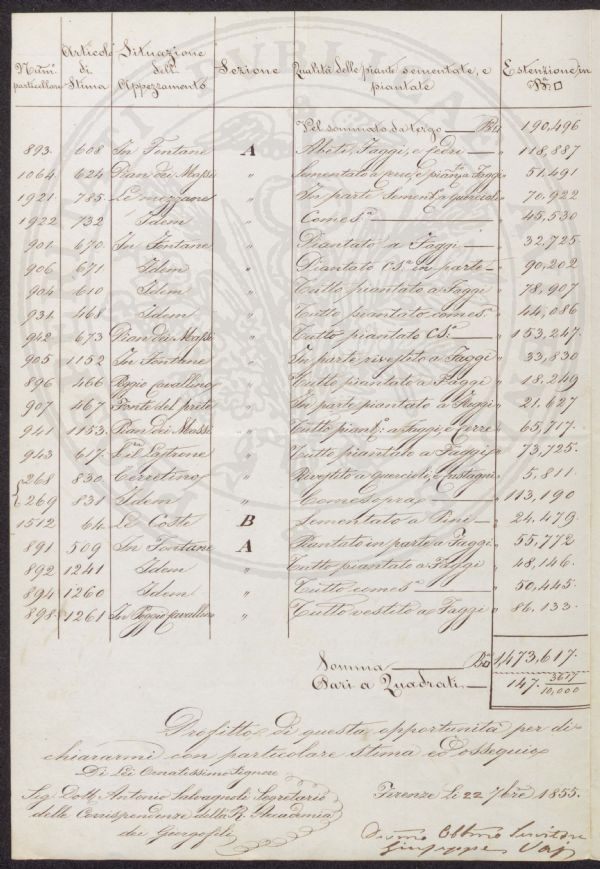 Num.i particellare | Articolo di Stima | Situazione dell' Appezzamento | Sezione | Qualità delle piante sementate, e piantate | Estenzione in B.a □
Pel sommato da tergo — B.a □ 190,496
893 608 In Fontane A Abeti, Faggi, e Cerri — " 118,887
1064 624 Pian dei Massi " Sementato a pere, e piant.o a Faggi " 51,491
1921 785 Le mezzane " In parte sement.o a querciol " 70,922
1922 732 Idem " Come S.a — " 45,530
901 670 In Fontane " Piantato a Faggi — " 32,725
906 671 Idem " Piantato C.S.a in parte — " 90,202
904 610 Idem " Tutto piantato a Faggi " 78,907
931 468 Idem " Tutto piantato come S.a " 44,086
942 673 Pian dei Massi " Tutto piantato C.S.a — " 153,247
905 1152 In Fontane " In parte rivestito a Faggi " 33,830
896 466 Poggio Cavallino " Tutto piantato a Faggi " 18,249
907 467 Fonte del prete " In parte piantato a Faggi " 21,627
941 1153 Pian dei Massi " Tutto piant.o a Faggi e Cerri " 65,717
943 617 " Tutto piantato a Faggi " 73,725
268 830 Cerretino " Rivestito a quercioli, e castagni " 5,811
269 831 Idem " Come Sopra — " 113,190
1512 64 Le Coste B Sementato a Pini — " 24,479
891 509 In Fontane A Piantato in parte a Faggi " 55,772
892 1241 Idem " Tutto piantato a Faggi " 48,146
894 1260 Idem " Tutto come S.a — " 50,445
898 1261 In Poggio Cavallino " Tutto vestito a Faggi " 86,133
Somma — B.a □ 1,473,617
Pari a Quadrati — " 147. 3617/10,000
Profitto di questa opportunità per di-
chiararmi con particolare stima ed ossequio
Di Lei Ornatissimo Signore
Sig. Dott. Antonio Salvagnoli Segretario
delle Corrispondenze della R. Accademia
dei Georgofili
Firenze Li 22 7bre 1855.
Dev.mo Obb.mo Servitore
Giuseppe Vaj